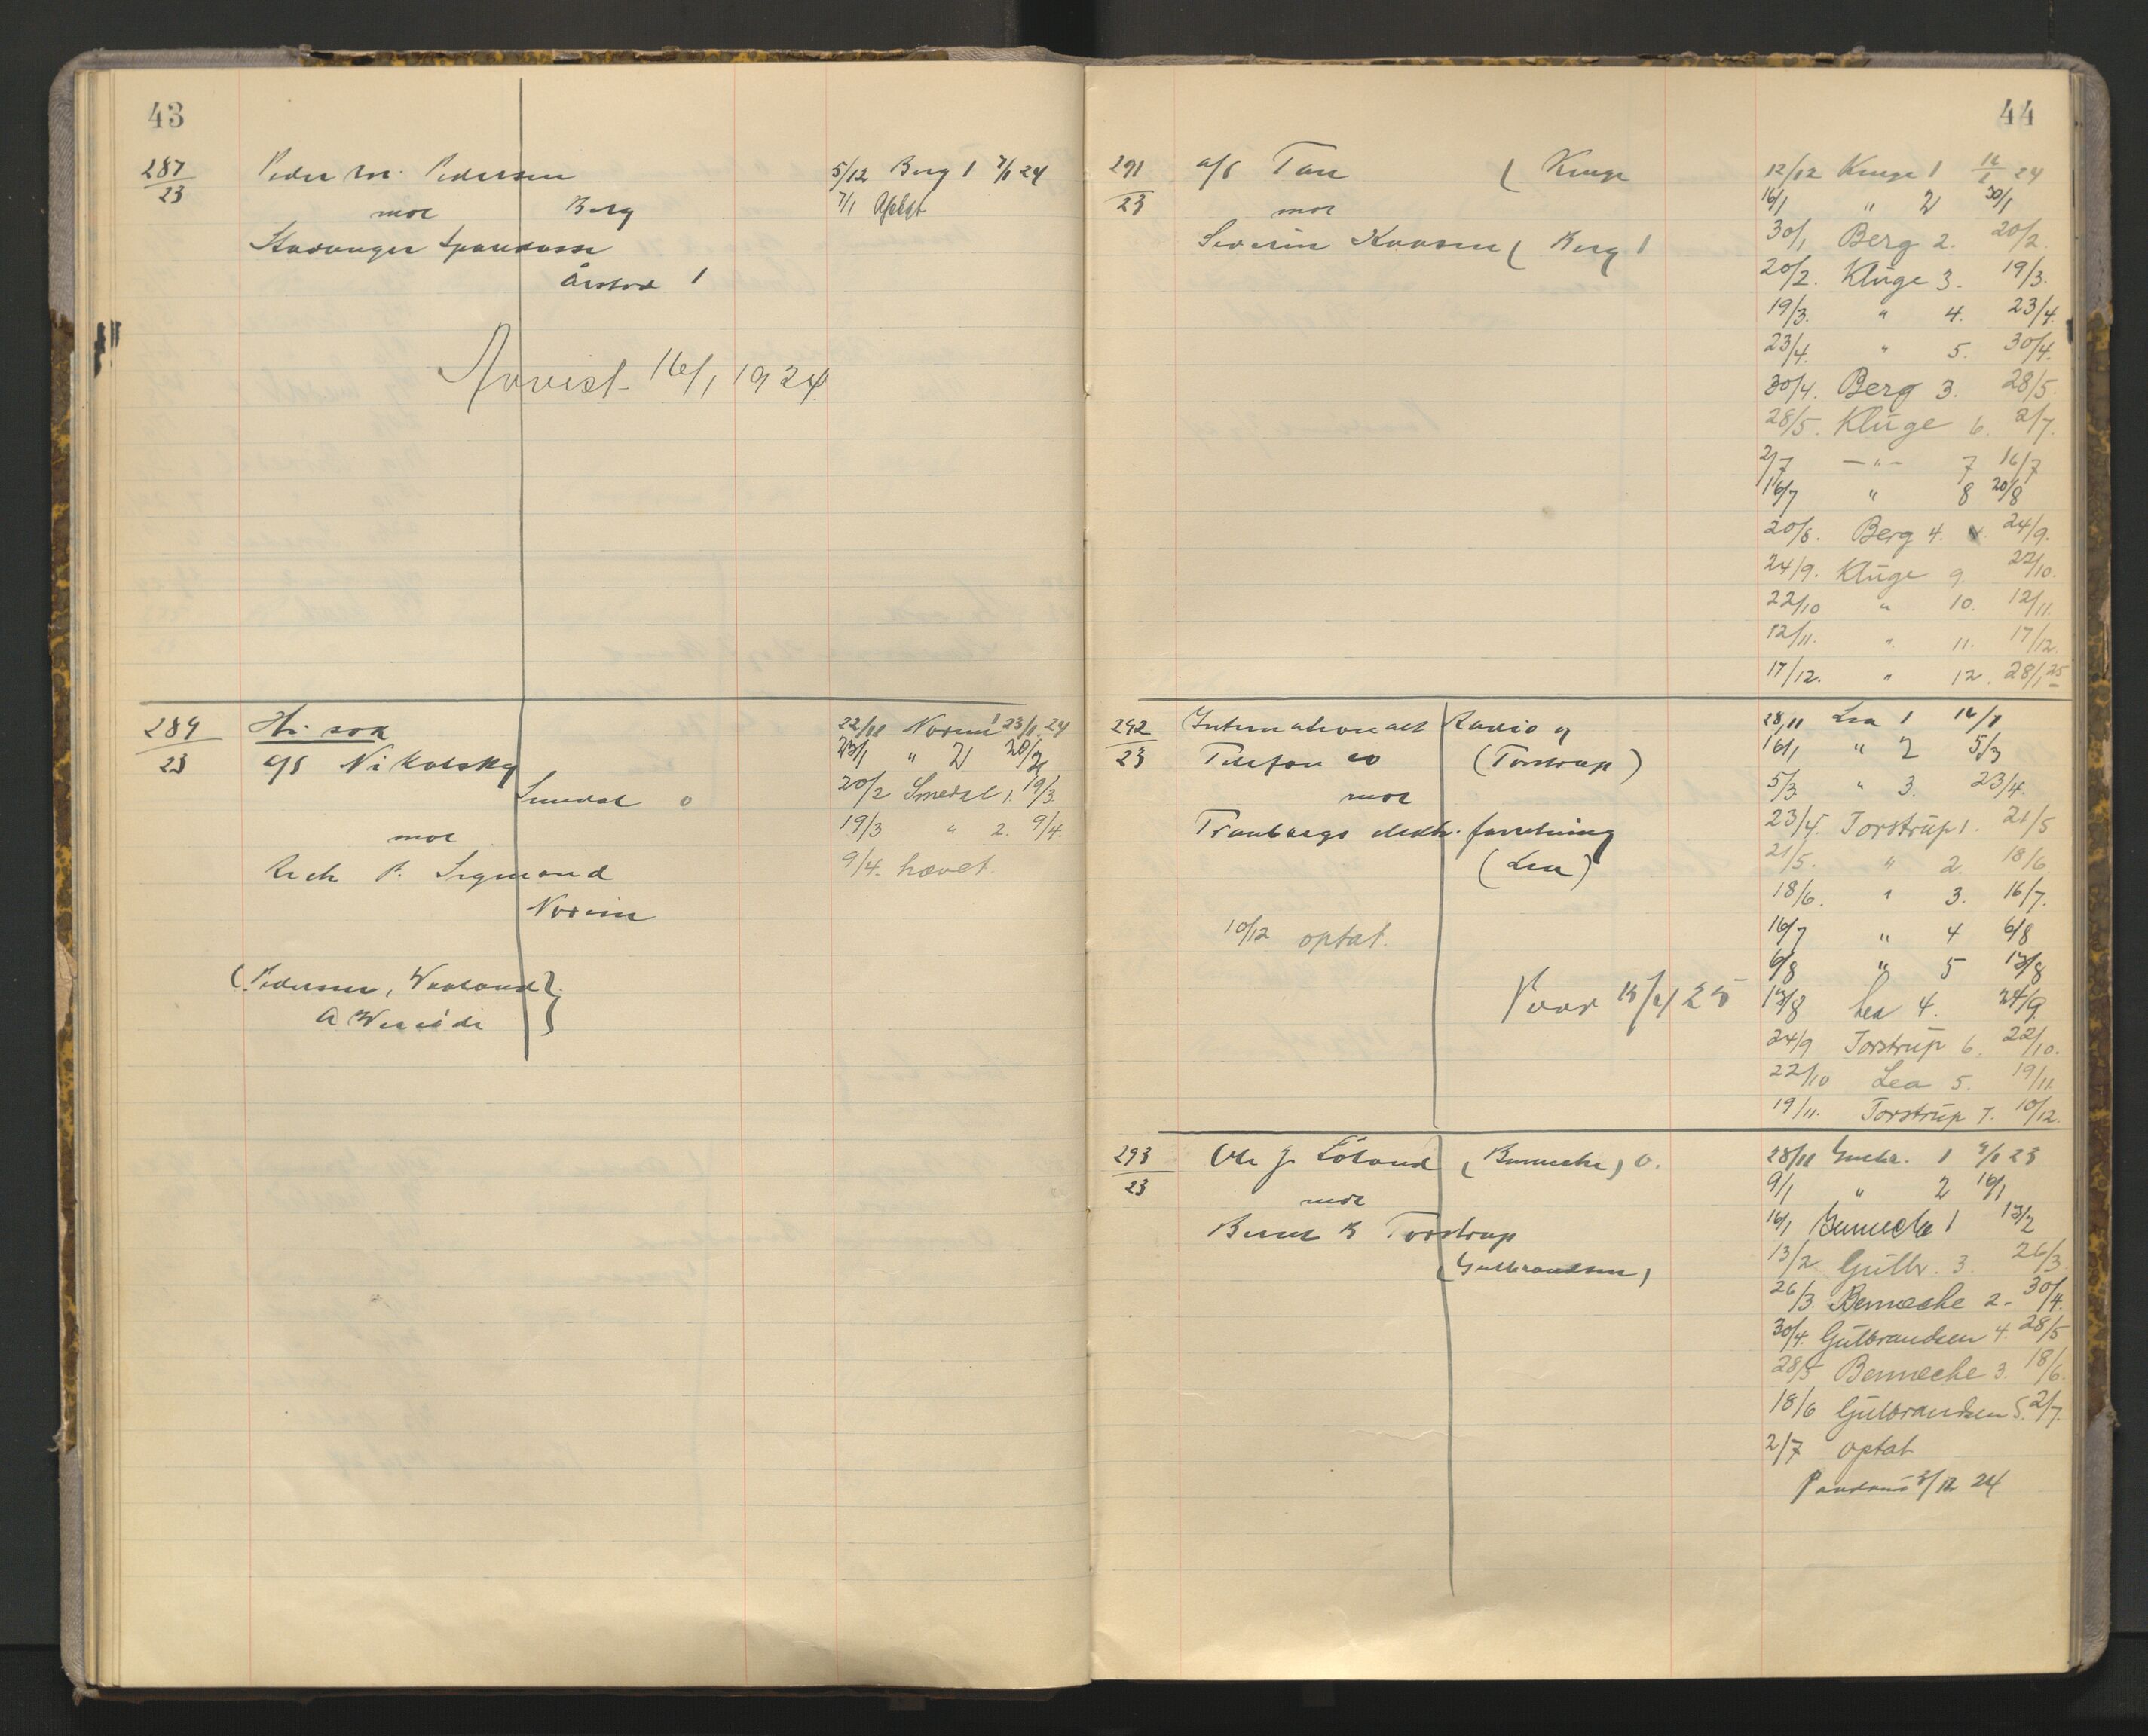 43
287
23
Peder M. Pedersen
mot
Berg
Stavanger Sparekasse
Årstad 1
5/12 Berg 1 7/1 24
7/1
Avvist 16/1 1924
289
23
H.r. sak
a/s Nikolsky
Smedal 0
mot
Rich P. Sigmond
Norem
(Pedersen,
22/11 Norem 1 23/1.24
23/1 " 2 20/2
20/2 Smedal 1. 19/3
19/3 " 2. 9/4.
9/4. hævet.
44
291
23
a/s Tau ( Kluge
mot
Severin Knudsen ( Berg 1
12/12 Kluge 1 16/1 24
16/1 " 2 30/1
30/1 Berg 2. 20/2.
20/2. Kluge 3. 19/3.
19/3. " 4. 23/4.
23/4. " 5. 30/4.
30/4. Berg 3. 28/5.
28/5. Kluge 6. 2/7.
2/7 —"— 7 16/7
16/7 " 8 20/8
20/8. Berg 4. 24/9.
24/9. Kluge 9. 22/10.
22/10 " 10. 12/11.
12/11. " 11. 17/12.
17/12. " 12. 28/1 25
292
23
Internationalt Radio og
Telefon co (Torstrup)
mot
Tranbergs elektr. forretning
(Lea)
10/12 optat.
28/11 Lea 1 16/1
16/1 " 2 5/3
5/3 " 3. 23/4.
23/4. Torstrup 1. 21/5
21/5. " 2. 18/6
18/6. " 3. 16/7.
16/7 " 4 6/8
6/8 " 5 13/8
13/8 Lea 4. 24/9
24/9 Torstrup 6. 22/10.
22/10 Lea 5. 19/11.
19/11. Torstrup 7. 10/12.
293
23
Ole J. Löland (Bennecke) 0.
mot
Bernt B Torstrup
(Gulbrandsen)
28/11 Gulbr. 1 9/1 23
9/1 " 2 16/1
16/1 Bennecke 1 13/2
13/2 Gulbr. 3. 26/3
26/3. Bennecke 2. 30/4.
30/4. Gulbrandsen 4. 28/5
28/5 Bennecke 3. 18/6.
18/6 Gulbrandsen 5. 2/7.
2/7 optat